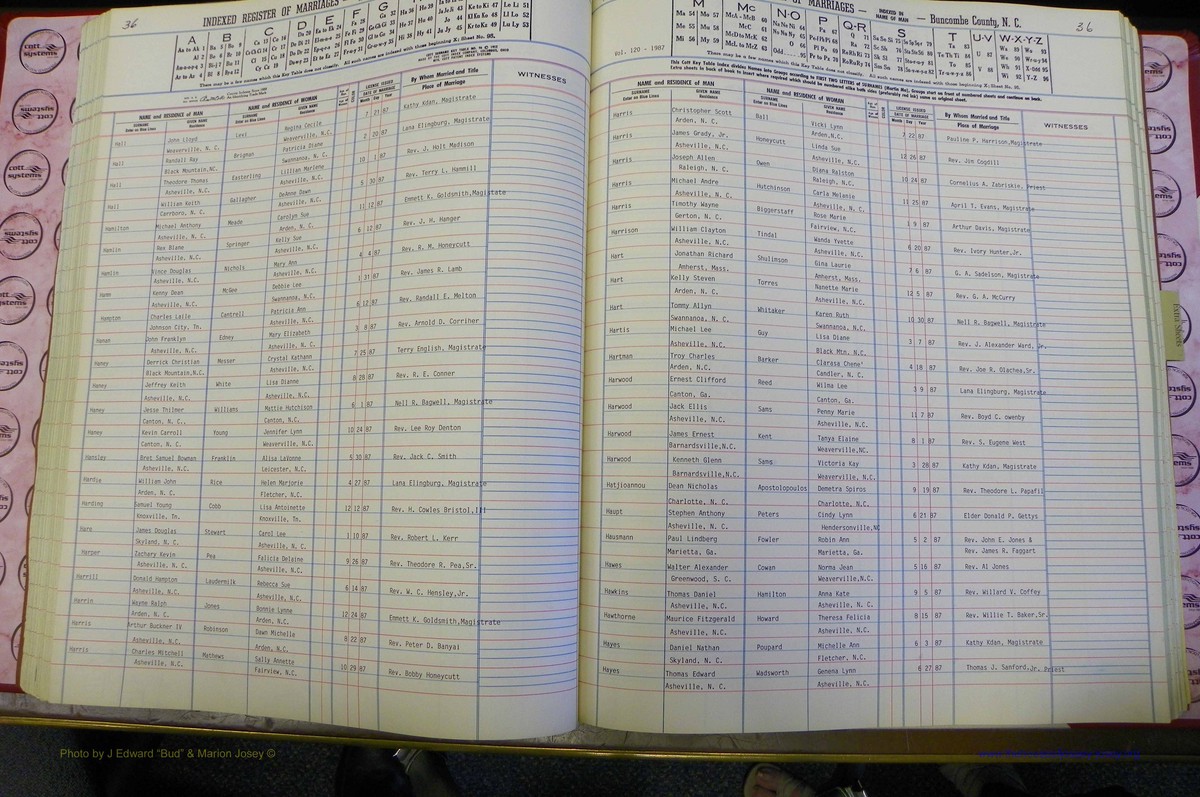 36
INDEXED REGISTER OF MARRIAGES
NAME and RESIDENCE OF MAN NAME and RESIDENCE OF WOMAN By Whom Married and Title WITNESSES
Place of Marriage
Hall John Lloyd Levi Regina Cecile 7 21 87 Kathy Kdan, Magistrate
Weaverville, N. C. Weaverville, N.C.
Hall Randall Ray Brigman Patricia Diane 2 20 87 Lana Elingburg, Magistrate
Black Mountain,NC. Swannanoa, N. C.
Hall Theodore Thomas Easterling Lillian Marlene 10 1 87 Rev. J. Holt Madison
Asheville, N.C. Asheville, N.C.
Hall William Keith Gallagher DeAnna Dawn 5 30 87 Rev. Terry L. Hammill
Carrboro, N. C. Asheville, N.C.
Hamilton Michael Anthony Meade Carolyn Sue 11 12 87 Emmett K. Goldsmith,Magistate
Asheville, N. C. Arden, N. C.
Hamlin Rex Blane Springer Kelly Sue 6 12 87 Rev. J. H. Hanger
Asheville, N.C. Asheville, N. C.
Hamlin Vince Douglas Nichols Mary Ann 4 4 87 Rev. R. M. Honeycutt
Asheville, N.C. Asheville, N.C.
Hamm Kenny Dean McGee Debbie Lee 1 31 87 Rev. James R. Lamb
Asheville, N.C. Swannanoa, N.C.
Hampton Charles Laile Cantrell Patricia Ann 6 12 87 Rev. Randall E. Melton
Johnson City, Tn. Asheville, N.C.
Hanan John Franklyn Edney Mary Elizabeth 3 8 87 Rev. Arnold D. Corriher
Asheville, N.C. Asheville, N. C.
Haney Derrick Christian Messer Crystal Kathann 7 25 87 Terry English, Magistrate
Black Mountain,N.C. Asheville, N.C.
Haney Jeffrey Keith White Lisa Dianne 8 28 87 Rev. R. E. Conner
Asheville, N.C. Asheville, N.C.
Haney Jesse Thilmer Williams Mattie Hutchison 6 1 87 Nell R. Bagwell, Magistrate
Canton, N. C.. Canton, N.C.
Haney Kevin Carroll Young Jennifer Lynn 10 24 87 Rev. Lee Roy Denton
Canton, N. C. Weaverville, N.C.
Hansley Bret Samuel Bowman Franklin Alisa LaVonne 5 30 87 Rev. Jack C. Smith
Asheville, N.C. Leicester, N.C.
Hardie William John Rice Helen Marjorie 4 27 87 Lana Elingburg, Magistrate
Arden, N. C. Fletcher, N.C.
Harding Samuel Young Cobb Lisa Antoinette 12 12 87 Rev. H. Cowles Bristol,III
Knoxville, Tn. Knoxville, Tn.
Hare James Douglas Stewart Carol Lee 1 10 87 Rev. Robert L. Kerr
Skyland, N. C. Asheville, N. C.
Harper Zachary Kevin Pea Falicia Delaine 9 26 87 Rev. Theodore R. Pea,Sr.
Asheville, N. C. Asheville, N.C.
Harrill Donald Hampton Laudermilk Rebecca Sue 6 14 87 Rev. W. C. Hensley,Jr.
Asheville, N.C. Asheville, N.C.
Harrin Wayne Ralph Jones Bonnie Lynne 12 24 87 Emmett K. Goldsmith,Magistrate
Arden, N. C. Arden, N.C.
Harris Arthur Buckner IV Robinson Dawn Michelle 8 22 87 Rev. Peter D. Banyai
Asheville, N.C. Arden, N.C.
Harris Charles Mitchell Mathews Sally Annette 10 29 87 Rev. Bobby Honeycutt
Asheville, N.C. Fairview, N.C.
MARRIAGES — INDEXED IN NAME OF MAN — Buncombe County, N. C.
36
Vol. 120 - 1987
NAME and RESIDENCE OF MAN NAME and RESIDENCE OF WOMAN By Whom Married and Title WITNESSES
Place of Marriage
Harris Christopher Scott Ball Vicki Lynn 7 22 87 Pauline P. Harrison,Magistrate
Arden, N. C. Arden,N.C.
Harris James Grady, Jr. Honeycutt Linda Sue 12 26 87 Rev. Jim Cogdill
Asheville, N.C. Asheville, N.C.
Harris Joseph Allen Owen Diana Ralston 10 24 87 Cornelius A. Zabriskie, Priest
Raleigh, N.C. Raleigh, N.C.
Harris Michael Andre Hutchinson Carla Melanie 11 25 87 April T. Evans, Magistrate
Asheville, N.C. Asheville, N.C.
Harris Timothy Wayne Biggerstaff Rose Marie 1 9 87 Arthur Davis, Magistrate
Gerton, N.C. Fairview, N.C.
Harrison William Clayton Tindal Wanda Yvette 6 20 87 Rev. Ivory Hunter,Jr.
Asheville, N.C. Asheville, N.C.
Hart Jonathan Richard Shulimson Gina Laurie 7 6 87 G. A. Sadelson, Magistrate
Amherst, Mass. Amherst, Mass.
Hart Kelly Steven Torres Nanette Marie 12 5 87 Rev. G. A. McCurry
Arden, N. C. Asheville, N.C.
Hart Tommy Allyn Whitaker Karen Ruth 10 30 87 Nell R. Bagwell, Magistrate
Swannanoa, N. C. Swannanoa, N.C.
Hartis Michael Lee Guy Lisa Diane 3 7 87 Rev. J. Alexander Ward, Jr.
Asheville, N.C. Black Mtn, N.C.
Hartman Troy Charles Barker Clarasa Chene' 4 18 87 Rev. Joe R. Olachea,Sr.
Arden, N.C. Candler, N. C.
Harwood Ernest Clifford Reed Wilma Lee 3 9 87 Lana Elingburg, Magistrate
Canton, Ga. Canton, Ga.
Harwood Jack Ellis Sams Penny Marie 11 7 87 Rev. Boyd C. owenby
Asheville, N.C. Asheville, N.C.
Harwood James Ernest Kent Tanya Elaine 8 1 87 Rev. S. Eugene West
Barnardsville,N.C. Weaverville,NC.
Harwood Kenneth Glenn Sams Victoria Kay 3 28 87 Kathy Kdan, Magistrate
Barnardsville,N.C. Weaverville, N.C.
Hatjioannou Dean Nicholas Apostolopoulos Demetra Spiros 9 19 87 Rev. Theodore L. Papafil
Charlotte, N. C. Charlotte, N.C.
Haupt Stephen Anthony Peters Cindy Lynn 6 21 87 Elder Donald P. Gettys
Asheville, N.C. Hendersonville,NC
Hausmann Paul Lindberg Fowler Robin Ann 5 2 87 Rev. John E. Jones &
Marietta, Ga. Marietta, Ga. Rev. James R. Faggart
Hawes Walter Alexander Cowan Norma Jean 5 16 87 Rev. Al Jones
Greenwood, S. C. Weaverville,N.C.
Hawkins Thomas Daniel Hamilton Anna Kate 9 5 87 Rev. Willard V. Coffey
Asheville, N.C. Asheville, N. C.
Hawthorne Maurice Fitzgerald Howard Theresa Felicia 8 15 87 Rev. Willie T. Baker,Sr.
Asheville, N.C. Asheville, N.C.
Hayes Daniel Nathan Poupard Michelle Ann 6 3 87 Kathy Kdan, Magistrate
Skyland, N. C. Fletcher, N.C.
Hayes Thomas Edward Wadsworth Genena Lynn 6 27 87 Thomas J. Sanford,Jr. Priest
Asheville, N. C. Asheville, N.C.
Photo by J Edward "Bud" & Marion Josey ©